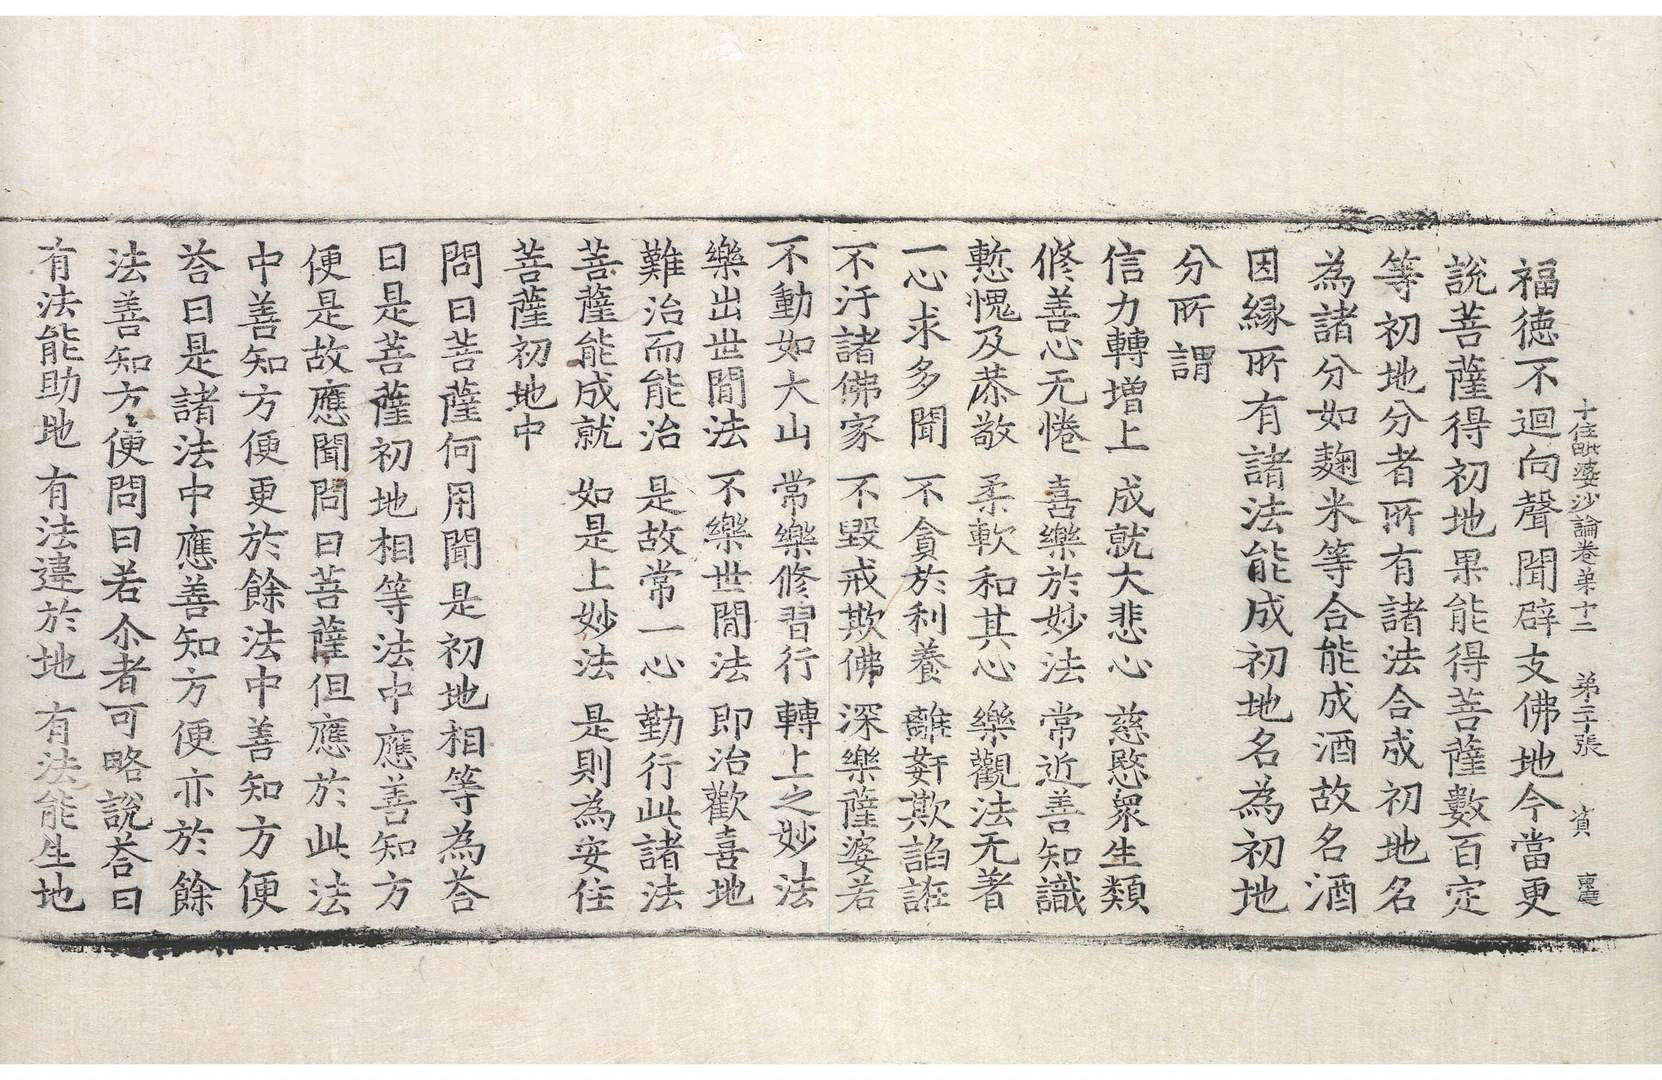 十住毗婆沙論卷苐十二　苐二十張　賓
福徳不迴向聲聞辟支佛地今當更
説菩薩得初地果能得菩薩數百定
等初地分者所有諸法合成初地名
為諸分如麴米等合能成酒故名酒
因縁所有諸法能成初地名為初地
分所謂
信力轉增上　成就大悲心　慈愍衆生類
修善心无惓　喜樂於妙法　常近善知識
慙愧及恭敬　柔軟和其心　樂觀法无著
一心求多聞　不貪於利養　離姧欺諂誑
不汙諸佛家　不毀戒欺佛　深樂薩婆若
不動如大山　常樂修習行　轉上之妙法
樂出世間法　不樂世間法　即治歡喜地
難治而能治　是故常一心　勤行此諸法
菩薩能成就　如是上妙法　是則為安住
菩薩初地中
問曰菩薩何用聞是初地相等為荅
曰是菩薩初地相等法中應善知方
便是故應聞問曰菩薩但應於此法
中善知方便更於餘法中善知方便
荅曰是諸法中應善知方便亦於餘
法善知方便問曰若尒者可略説荅曰
有法能助地　有法違於地　有法能生地